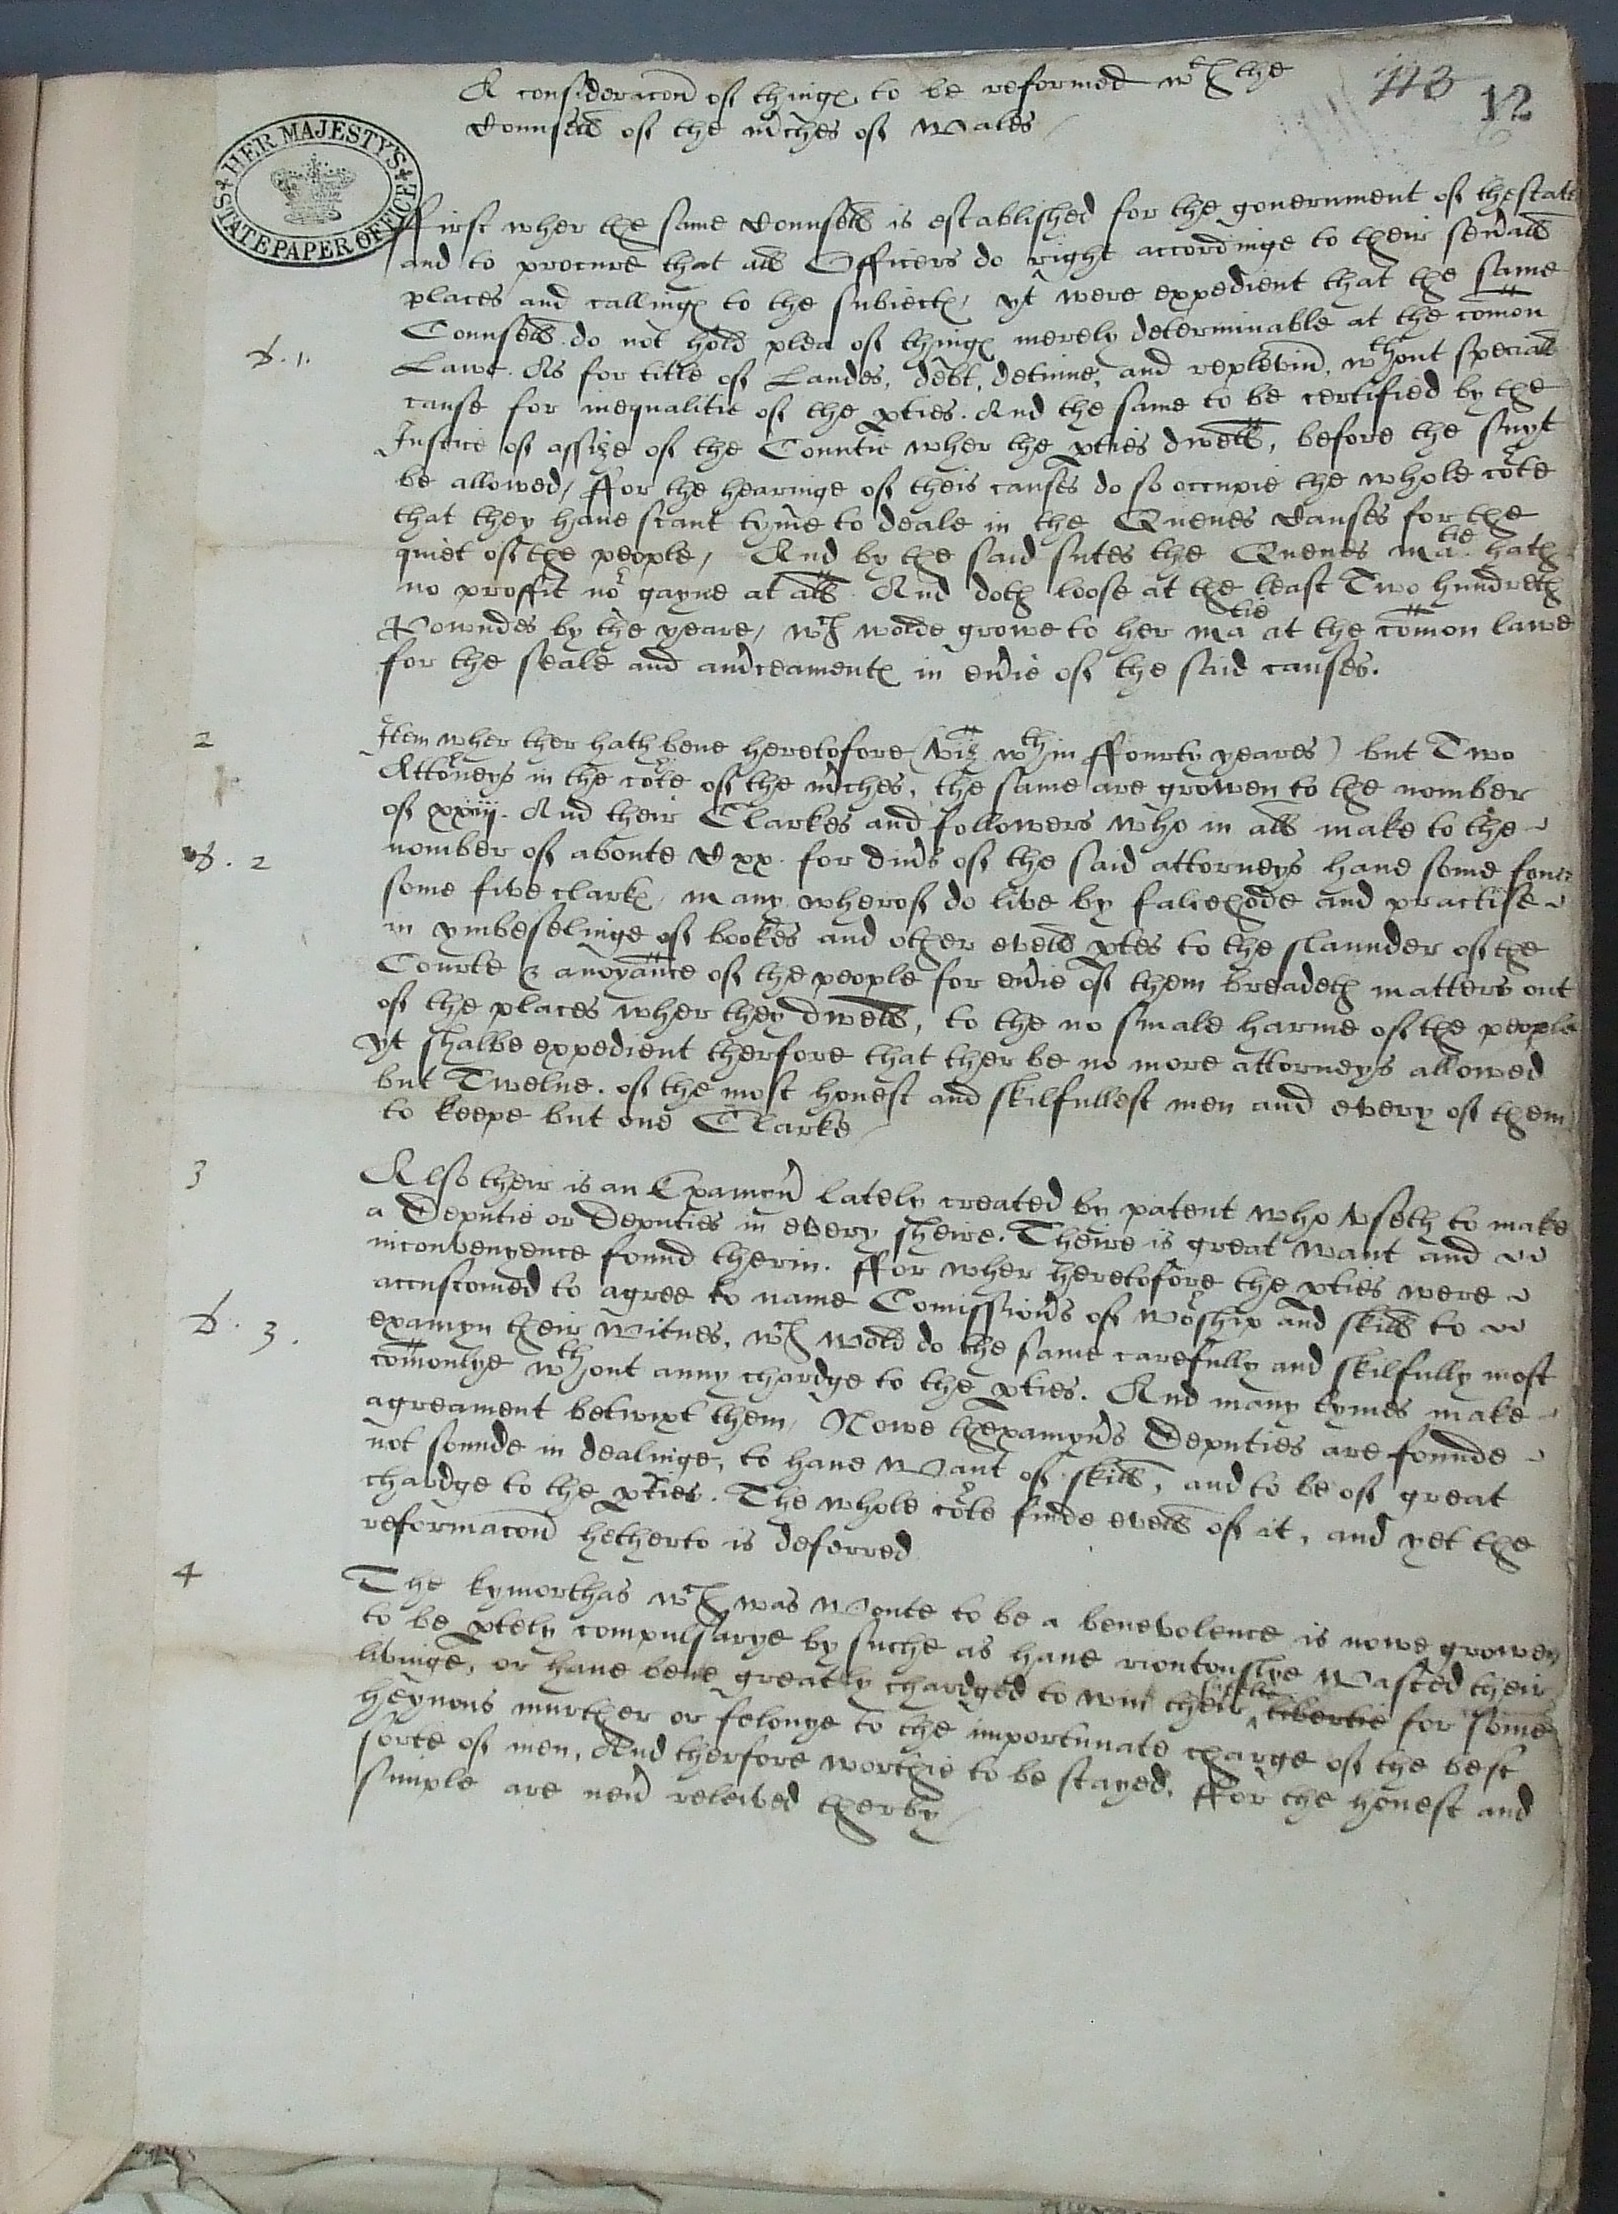 A consideracon of things to be reformed wth the
Counsell of the mches of Wales
113 12
HER MAJESTY'S STATE PAPER OFFICE
ffirst wher the same Counsell is established for the gouernment of the state
and to procure that all Officers do right accordinge to their seuall
places and callings to the subiects, yt were expedient that the same
Counsell do not hold plea of things merely determinable at the comon
b. 1.
Lawe. As for title of Landes, debt, detinue, and replevin, wthout speciall
cause for inequalitie of the pties. And the same to be certified by the
Justice of assize of the Countie wher the pties dwell, before the suyt
be allowed, ffor the hearinge of theis causes do so occupie the whole corte
that they haue scant tyme to deale in the Quenes causes for the
quiet of the people, And by the said sutes the Quenes matie hath
no proffit nor gayne at all. And doth loose at the least Two hundreth
Powndes by the yeare, wch wolde growe to her matie at the comon lawe
for the seale and amceaments in euie of the said causes.
2
Item wher ther hath bene heretofore (viz wthin ffourty yeares) but Two
Attorneys in the corte of the mches, the same are growen to the nomber
of xxiiij. And their Clarkes and followers who in all make to the
b. 2
nomber of aboute Cxx. for dius of the said attorneys haue some four
some five clarks, many wherof do live by falsehode and practise
in ymbeselinge of bookes and other evell ptes to the slaunder of the
Courte & anoyance of the people for euie of them breadeth matters out
of the places wher they dwell, to the no smale harme of the people
yt shalbe expedient therfore that ther be no more attorneys allowed
but Twelue. of the most honest and skilfullest men and every of them
to keepe but one Clarke
3
Also their is an Examyn lately created by patent who vseth to make
a Deputie or Deputies in every sheire. Theire is great want and
inconvenyence found therin. ffor wher heretofore the pties were
accustomed to agree to name Comissions of worship and skill to
b. 3.
examyn their witnes, wch wold do the same carefully and skilfully most
comonlye wthout anny chardge to the pties. And many tymes make
agreament betwixt them, Nowe thexamyns Deputies are founde
not sounde in dealinge, to haue want of skill, and to be of great
chardge to the pties. The whole corte finde evell of it, and yet the
reformacon hetherto is deferred
4
The kymorthas wch was wonte to be a benevolence is nowe growen
to be ptely compulsarye by suche as haue riontouslye wasted their
livinge, or haue bene greatly chardged to win their libertie for some
heynous murther or felonye to the importunate charge of the best
sorte of men, And therfore worthie to be stayed. ffor the honest and
simple are neu releived therby